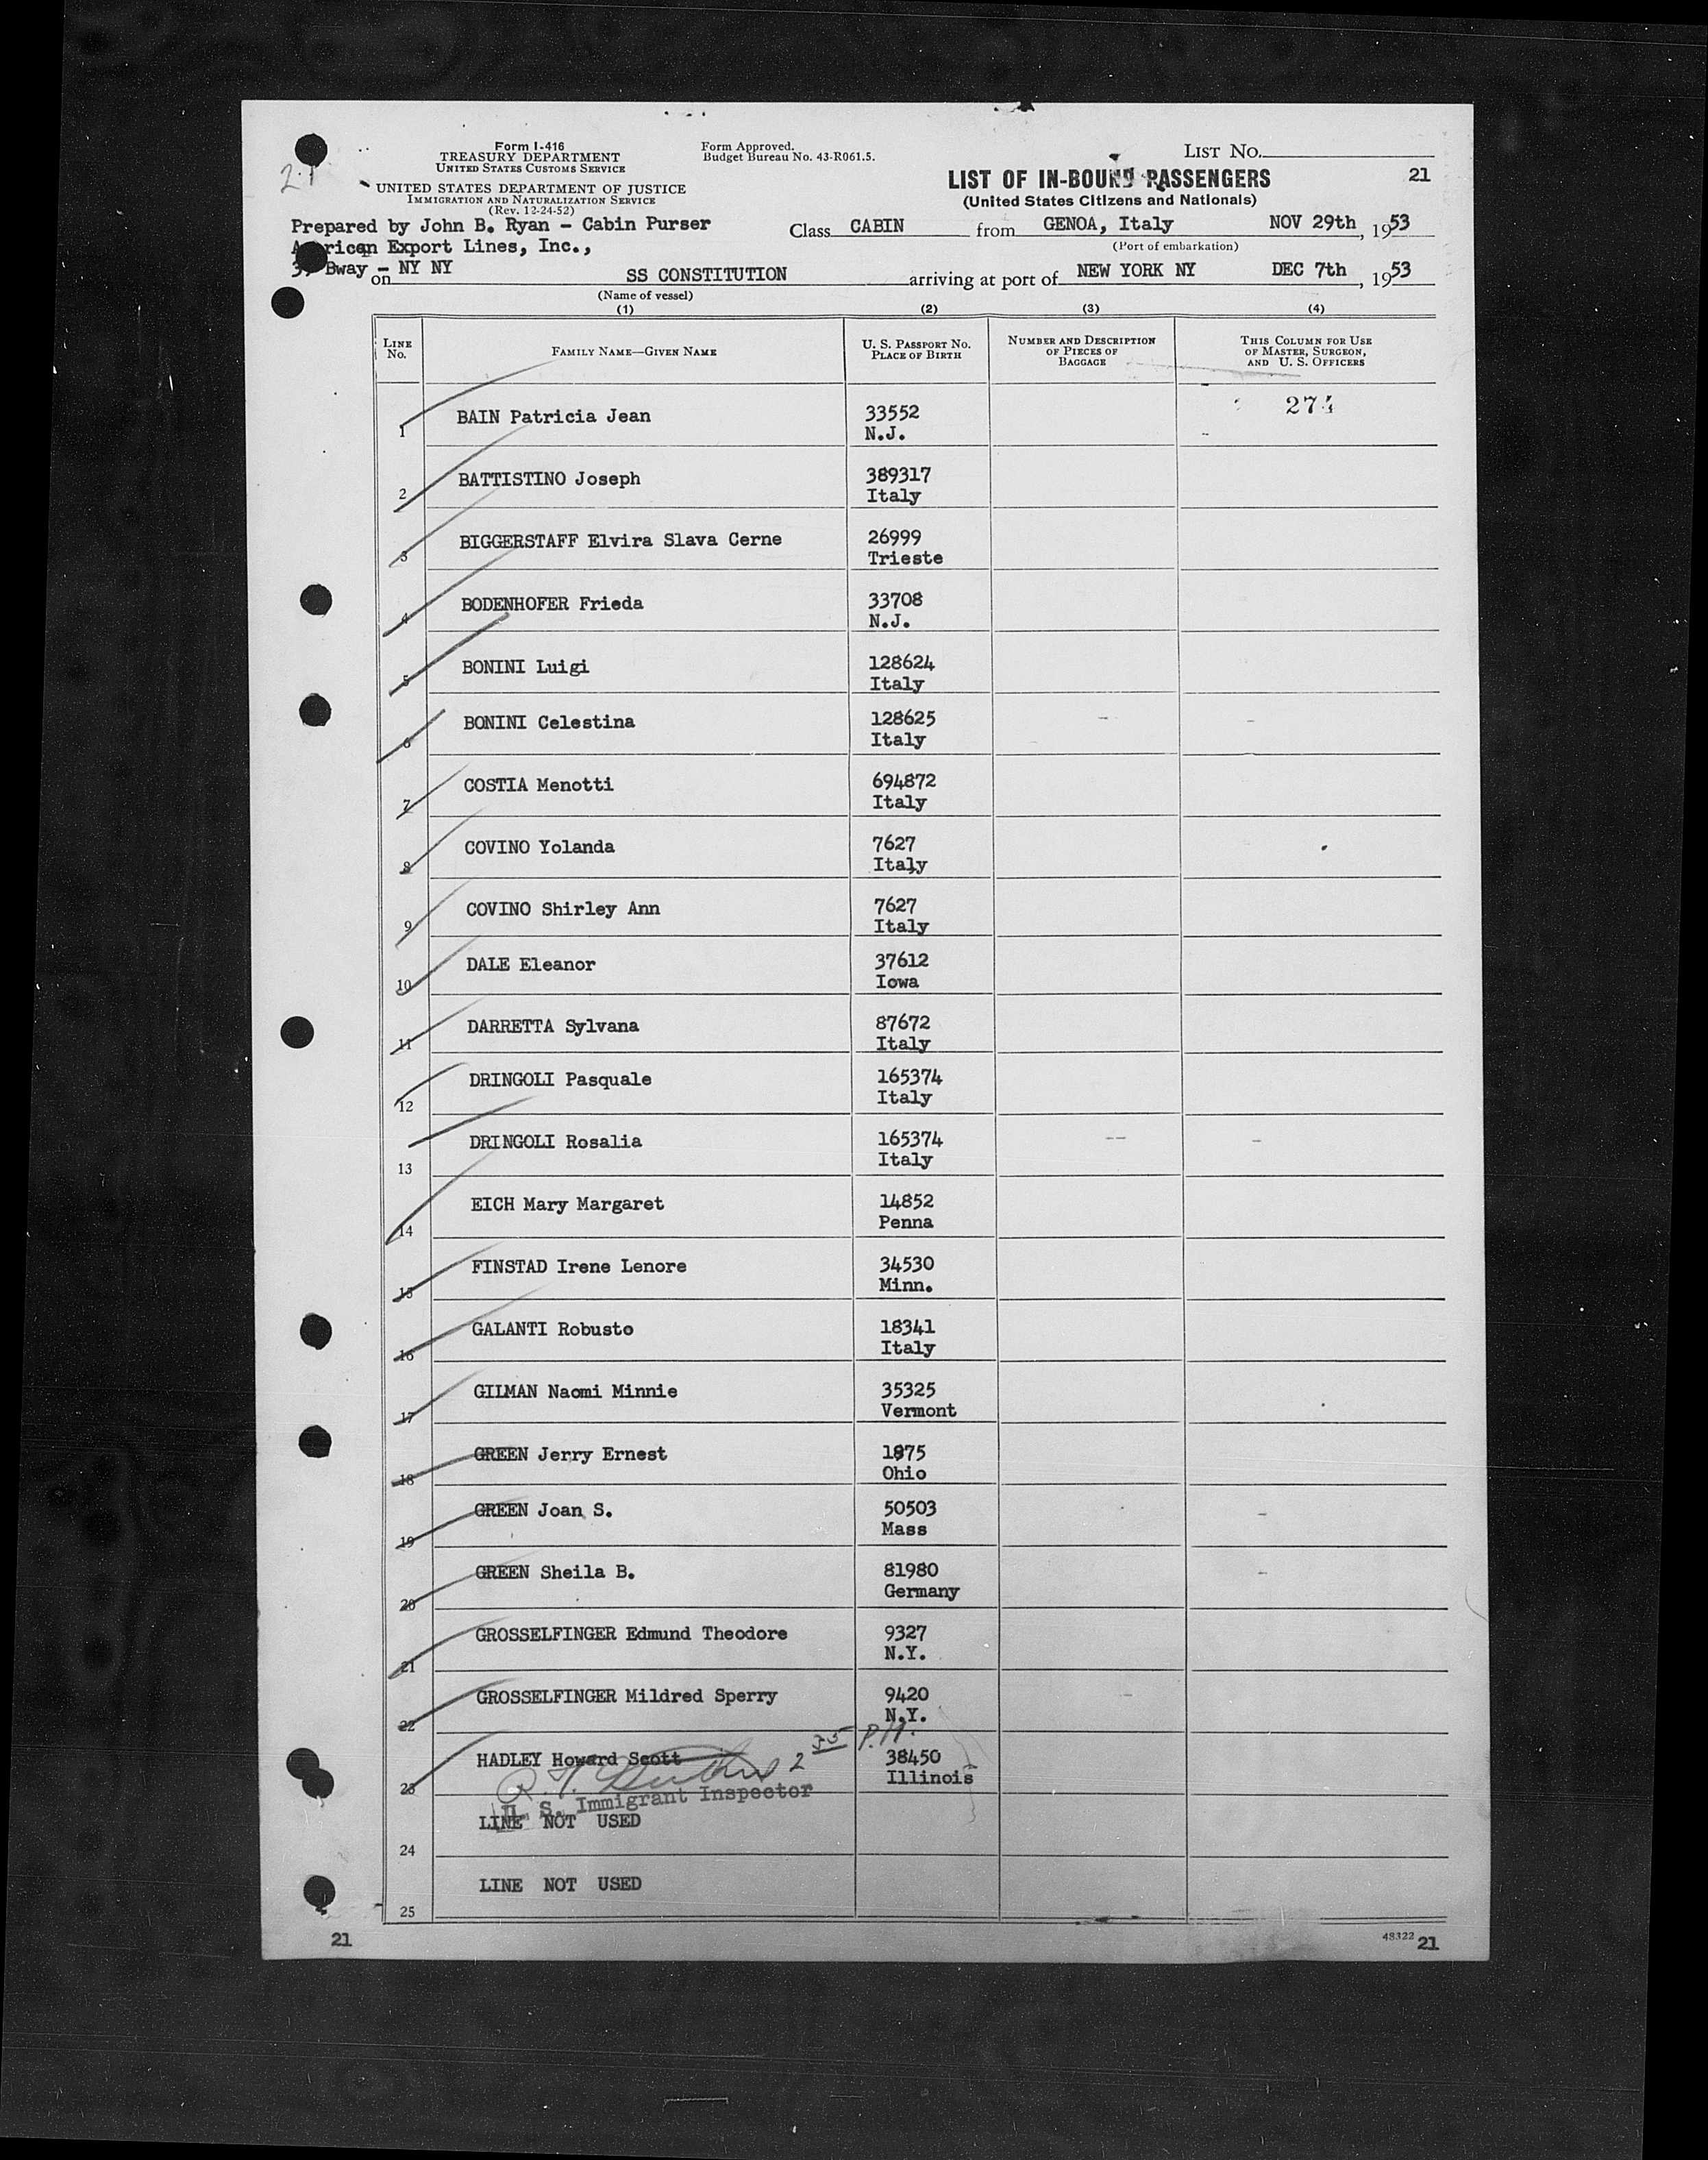 Form I-416
TREASURY DEPARTMENT
UNITED STATES CUSTOMS SERVICE
UNITED STATES DEPARTMENT OF JUSTICE
IMMIGRATION AND NATURALIZATION SERVICE
(Rev. 12-24-52)
Form Approved.
Budget Bureau No. 43-R061.5.
LIST No.
21
LIST OF IN-BOUND PASSENGERS
(United States Citizens and Nationals)
21
Prepared by John B. Ryan - Cabin Purser
American Export Lines, Inc.,
Bway - NY NY
Class CABIN from GENOA, Italy NOV 29th, 1953
(Port of embarkation)
on SS CONSTITUTION arriving at port of NEW YORK NY DEC 7th, 1953
(Name of vessel)
(1) (2) (3) (4)
LINE No. FAMILY NAME—GIVEN NAME U. S. PASSPORT NO. PLACE OF BIRTH NUMBER AND DESCRIPTION OF PIECES OF BAGGAGE THIS COLUMN FOR USE OF MASTER, SURGEON, AND U. S. OFFICERS
1 BAIN Patricia Jean 33552
N.J.
2 BATTISTINO Joseph 389317
Italy
3 BIGGERSTAFF Elvira Slava Cerne 26999
Trieste
4 BODENHOFER Frieda 33708
N.J.
5 BONINI Luigi 128624
Italy
6 BONINI Celestina 128625
Italy
7 COSTIA Menotti 694872
Italy
8 COVINO Yolanda 7627
Italy
9 COVINO Shirley Ann 7627
Italy
10 DALE Eleanor 37612
Iowa
11 DARRETTA Sylvana 87672
Italy
12 DRINGOLI Pasquale 165374
Italy
13 DRINGOLI Rosalia 165374
Italy
14 EICH Mary Margaret 14852
Penna
15 FINSTAD Irene Lenore 34530
Minn.
16 GALANTI Robusto 18341
Italy
17 GILMAN Naomi Minnie 35325
Vermont
18 GREEN Jerry Ernest 1875
Ohio
19 GREEN Joan S. 50503
Mass
20 GREEN Sheila B. 81980
Germany
21 GROSSELFINGER Edmund Theodore 9327
N.Y.
22 GROSSELFINGER Mildred Sperry 9420
N.Y.
23 HADLEY Howard Scott 38450
Illinois
2 35 P.M.
U. S. Immigrant Inspector
24 LINE NOT USED
25 LINE NOT USED
21
48322 21